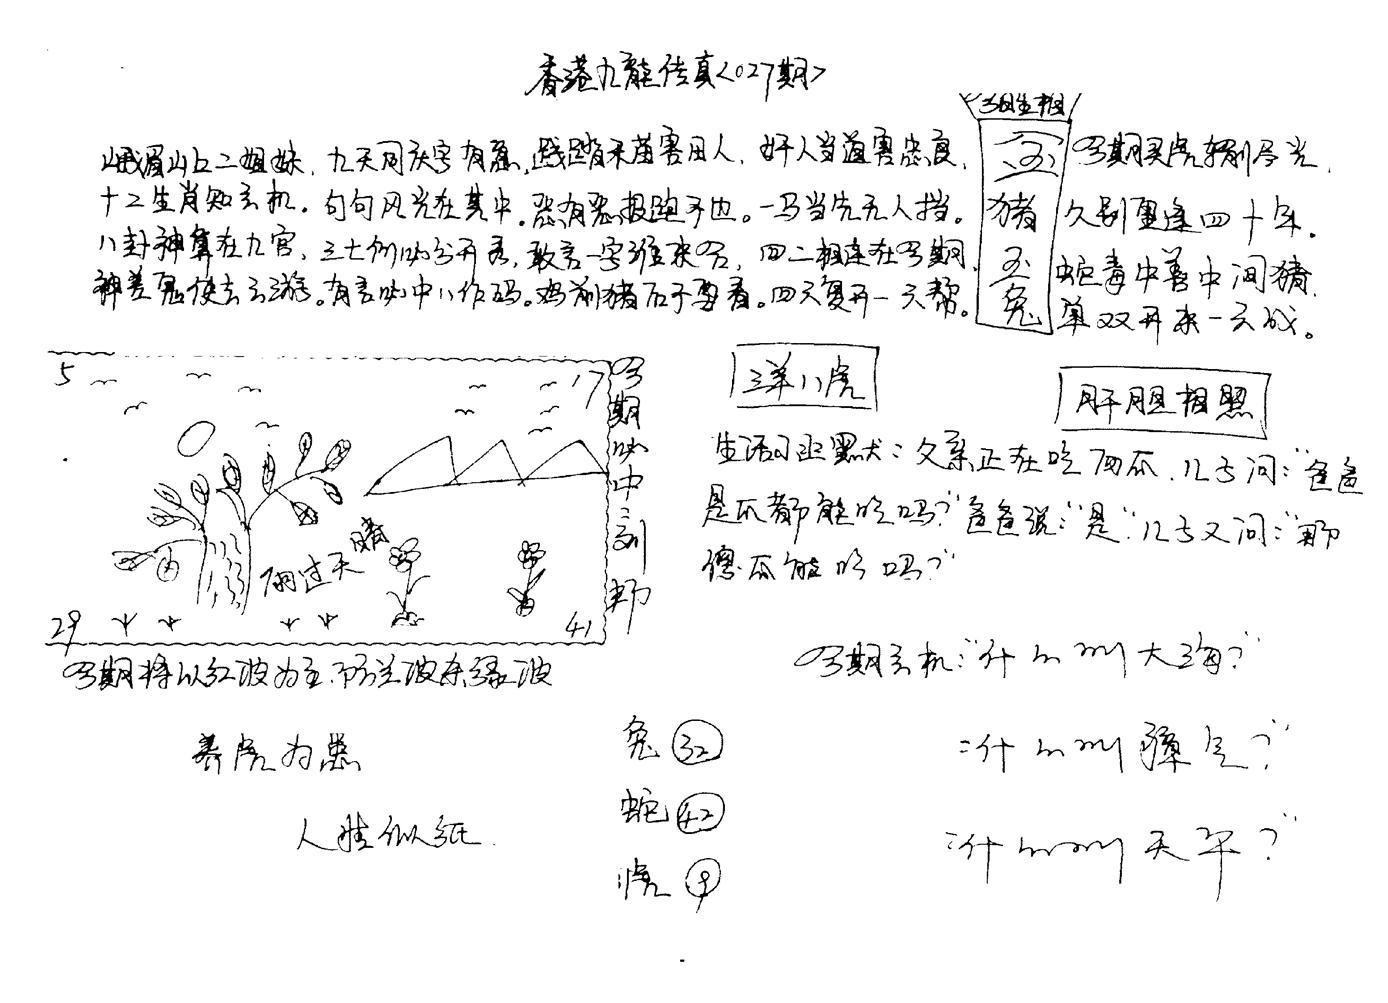 香港九龍传真<027期>
今期生相
峨眉山上二姐妹.九天同庆字有意.践踏禾苗害田人.奸人当道害忠良.
十二生肖知玄机.句句风光在其中.恶有恶报跑不也。一马当先无人挡。
八卦神算在九宫,三七例必分开看,敢言一字谁来答,四二相连在今期.
神差鬼使去云游。有言必中八作码。鸡前猪后予要看。四六复开一六帮。
猪
玉
兔
今期买虎转别号光.
久别重逢四十年.
蛇毒中着中间猪.
单双开来一六战。
5
17
29
41
雨过天晴
今期必中:列那
今期将以红波为主.防兰波杀绿波
三羊八虎
肝胆相照
生活习题默犬:父亲正在吃西瓜.儿子问:"爸爸
是瓜都能吃吗?"爸爸说:"是"儿子又问:"那
傻瓜能吃吗?"
今期玄机:"什么叫大海?"
:"什么叫骄兵?"
:"什么叫天平?"
养虎为患
人情似纸
兔 32
蛇 42
虎 9